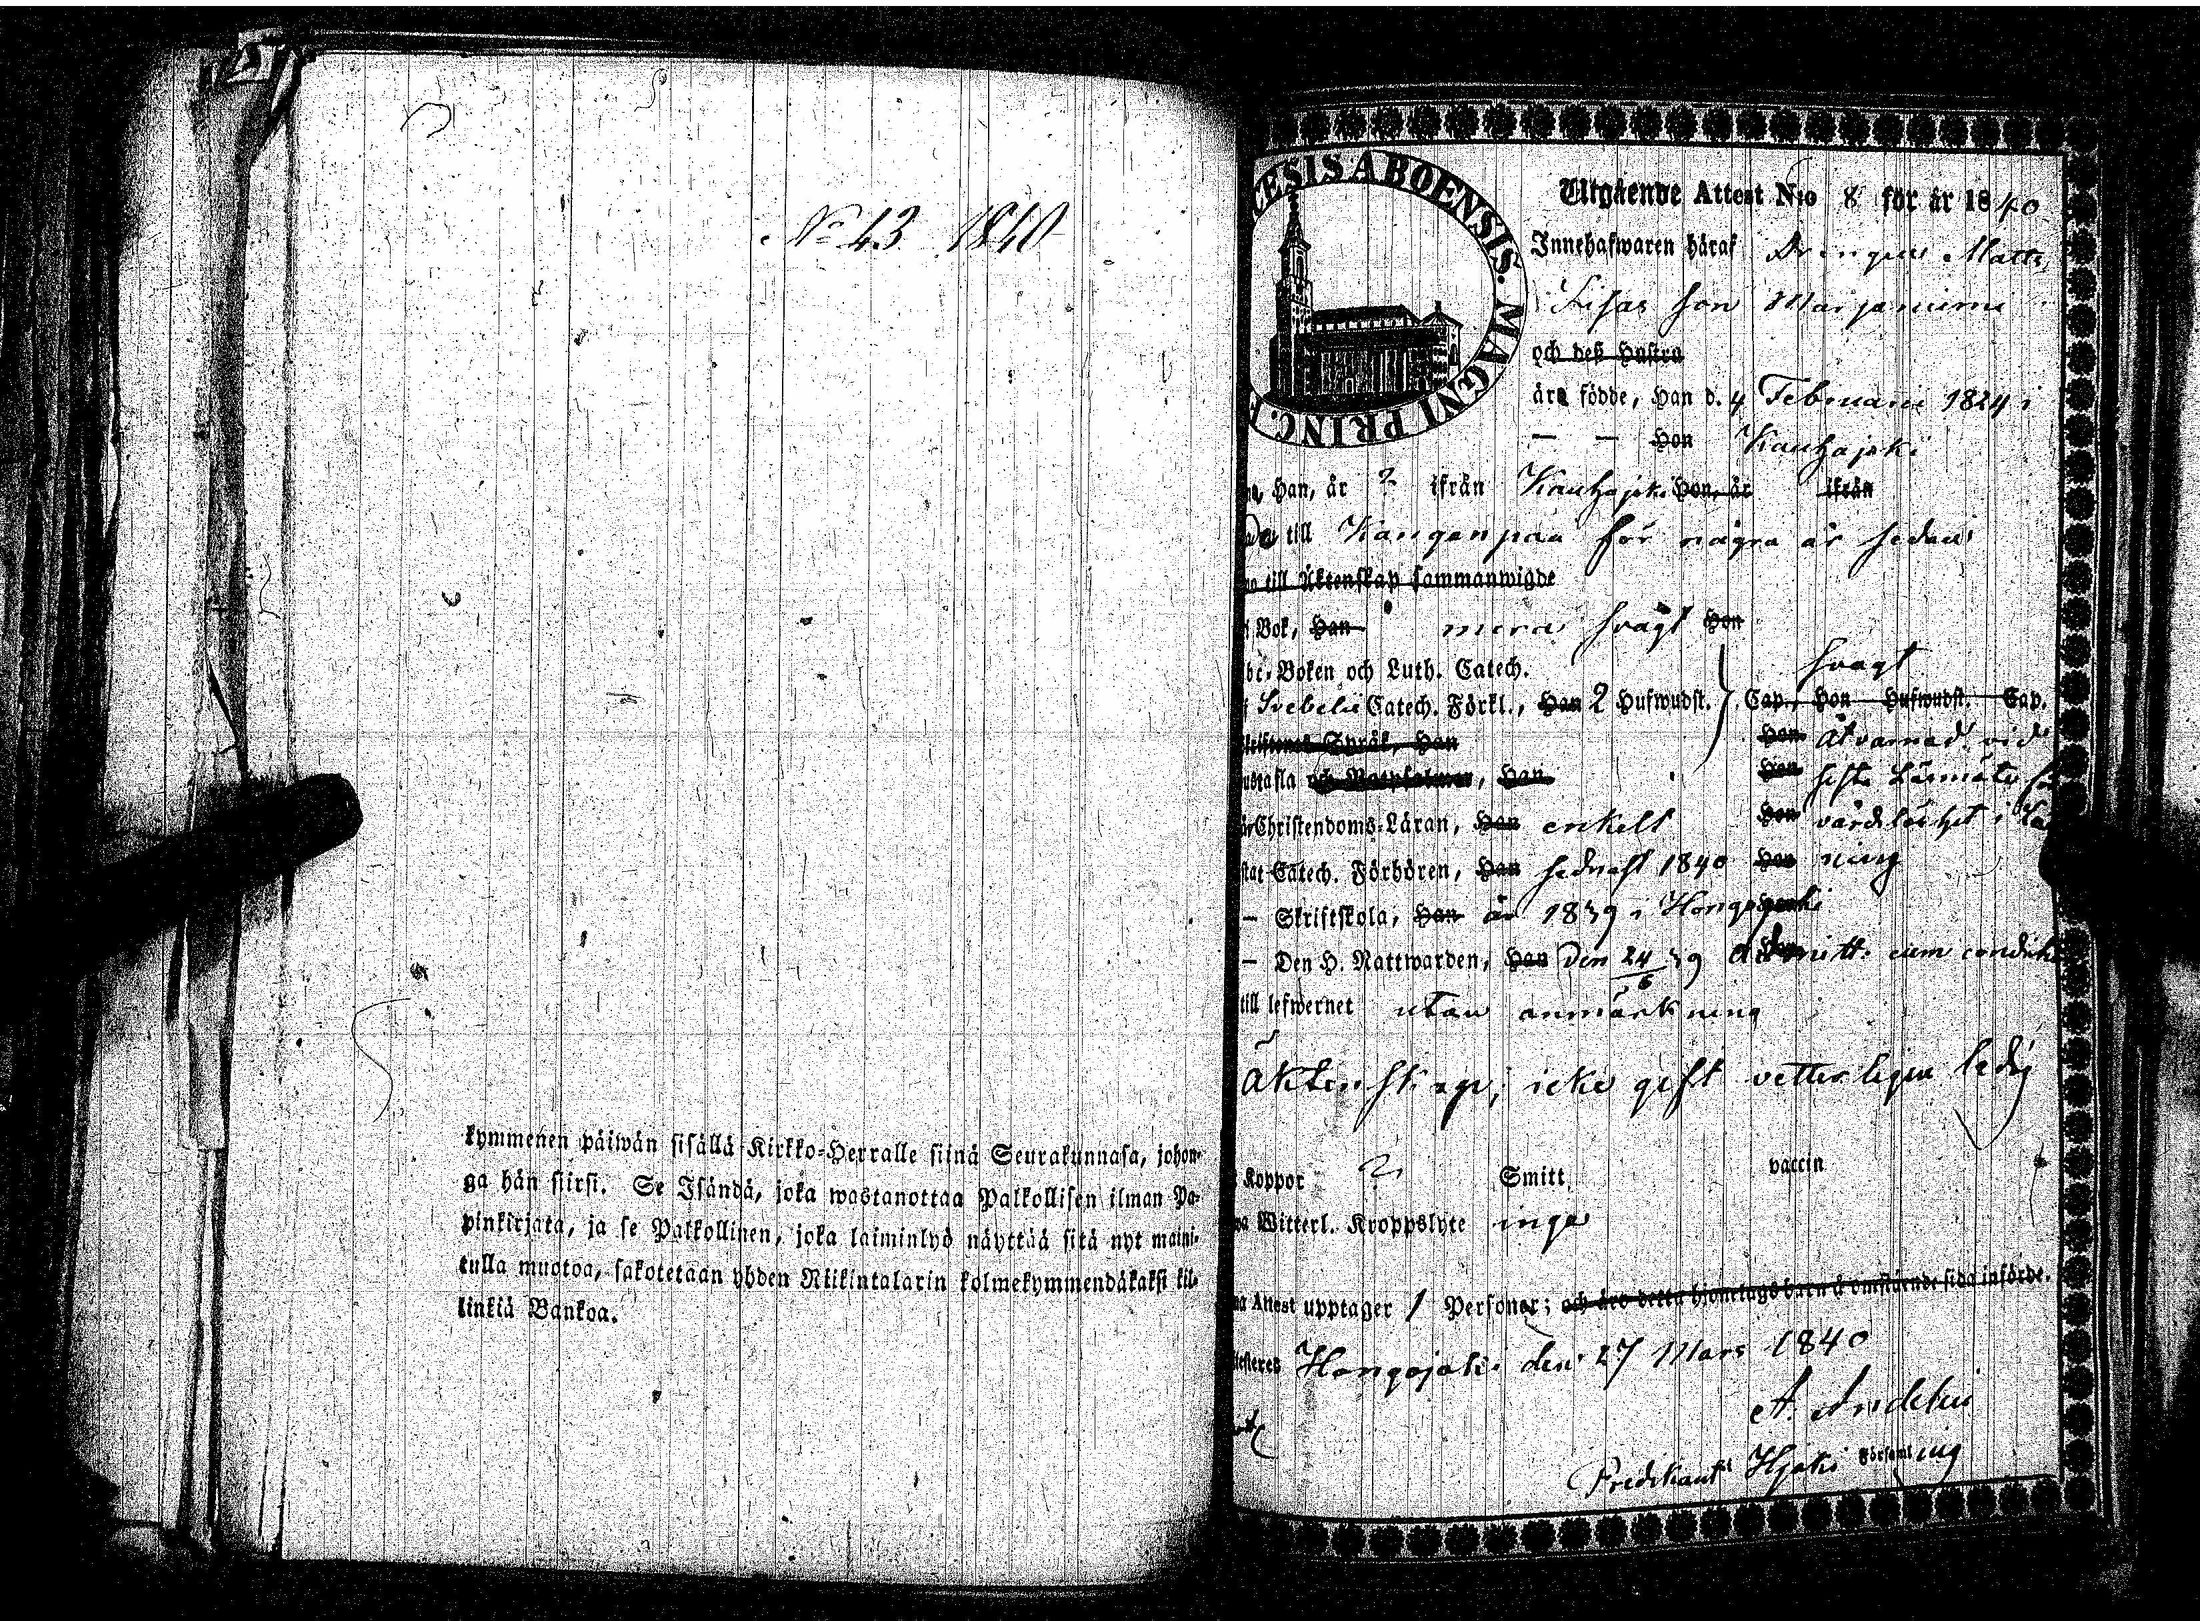 No 43 1840
kymmenen päiwän sisällä Kirkko-Herralle siinä Seurakunnasa, johon-
ga hän siirsi. Se Isändä, joka wastanottaa Palkollisen ilman Pa-
pinkirjata, ja se Palkollinen, joka laiminlyö näyttää sitä nyt maini-
tulla muotoa, sakotetaan yhden Riikintalarin kolmekymmendäkaksi kil-
linkiä Bankoa.
CESIS ABOENSIS. MAGNI PRINC. F
Utgående Attest N:o 8 för år 1840
Innehafwaren häraf Drengen Matts
son Marjaniemi
och deß Hustru
äro födde, Han d. 4 Februari 1824 i
— — Hon Kauhajoki
Han, är 2 ifrån Kauhajoki Hon, är ifrån
till Kangenpää för några år sedan
till Äktenskap sammanwigde
Bok, Han mera svagt Hon
be-Boken och Luth. Catech. svagt
Svebelii Catech. Förkl., Han 2 Hufwudst. Cap. Hon Hufwudst. Cap.
Språk, Han Hon Åtvarnad vid
ustafla och, Han Hon sista Läsmöte
Christendoms-Läran, Han enkelt Hon vårdslöshet i
stat Catech. Förhören, Han sednast 1840 Hon ning
— Skriftskola, Han år 1839 i Hongojoki
— Den H. Nattwarden, Han den 24/6 39 admitt. cum condit
till lefwernet utan anmärkning
äktenskap; icke gift vetterligen ledig
Koppor 2 Smitt vaccin
Witterl. Kroppslyte inga
na Attest upptager 1 Personer; och äro detta hjonelags barn å omstående sida införde.
Hongojoki den 27 Mars 1840
A. Andelin
Predikant i Hjoki Församling